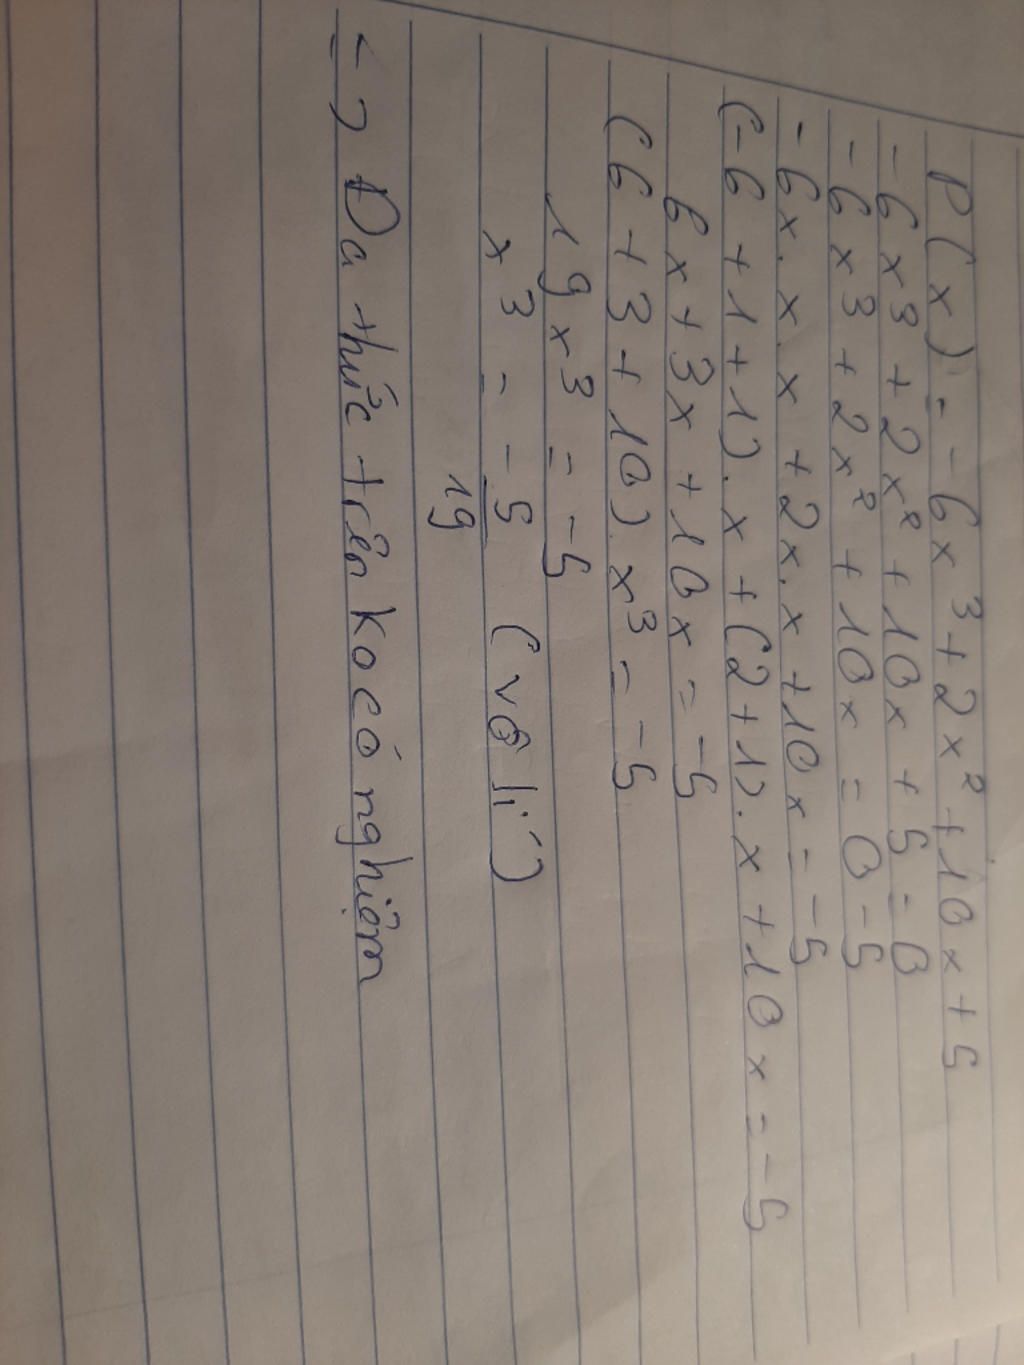 P(x) = -6x³ + 2x² + 10x + 5
-6x³ + 2x² + 10x + 5 = 0
-6x³ + 2x² + 10x = 0 - 5
-6x.x.x + 2x.x + 10x = -5
(-6 + 1 + 1).x + (2 + 1).x + 10x = -5
6x + 3x + 10x = -5
(6 + 3 + 10).x³ = -5
19x³ = -5
x³ = -5/19 (vô lí)
=> Đa thức trên ko có nghiệm